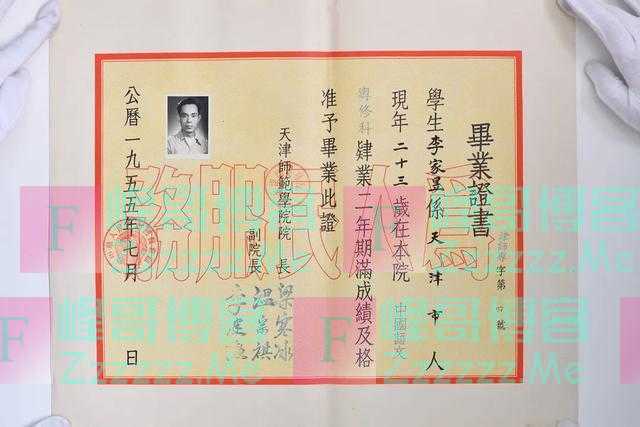 畢業證書
津師專字第 號
學生李家星係天津市人
現年二十三歲在本院中國語文
專修科肄業二年期滿成績及格
准予畢業此證
天津師範學院院長
梁寒冰
副院長
溫宗祺
李建
公曆一九五五年七月 日
為人民服務
F 峰哥博客
Zzzzzzz.Me
F 峰哥博客
Zzzzzzz.Me
F 峰哥博客
Zzzzzzz.Me
F 峰哥博客
Zzzzzzz.Me